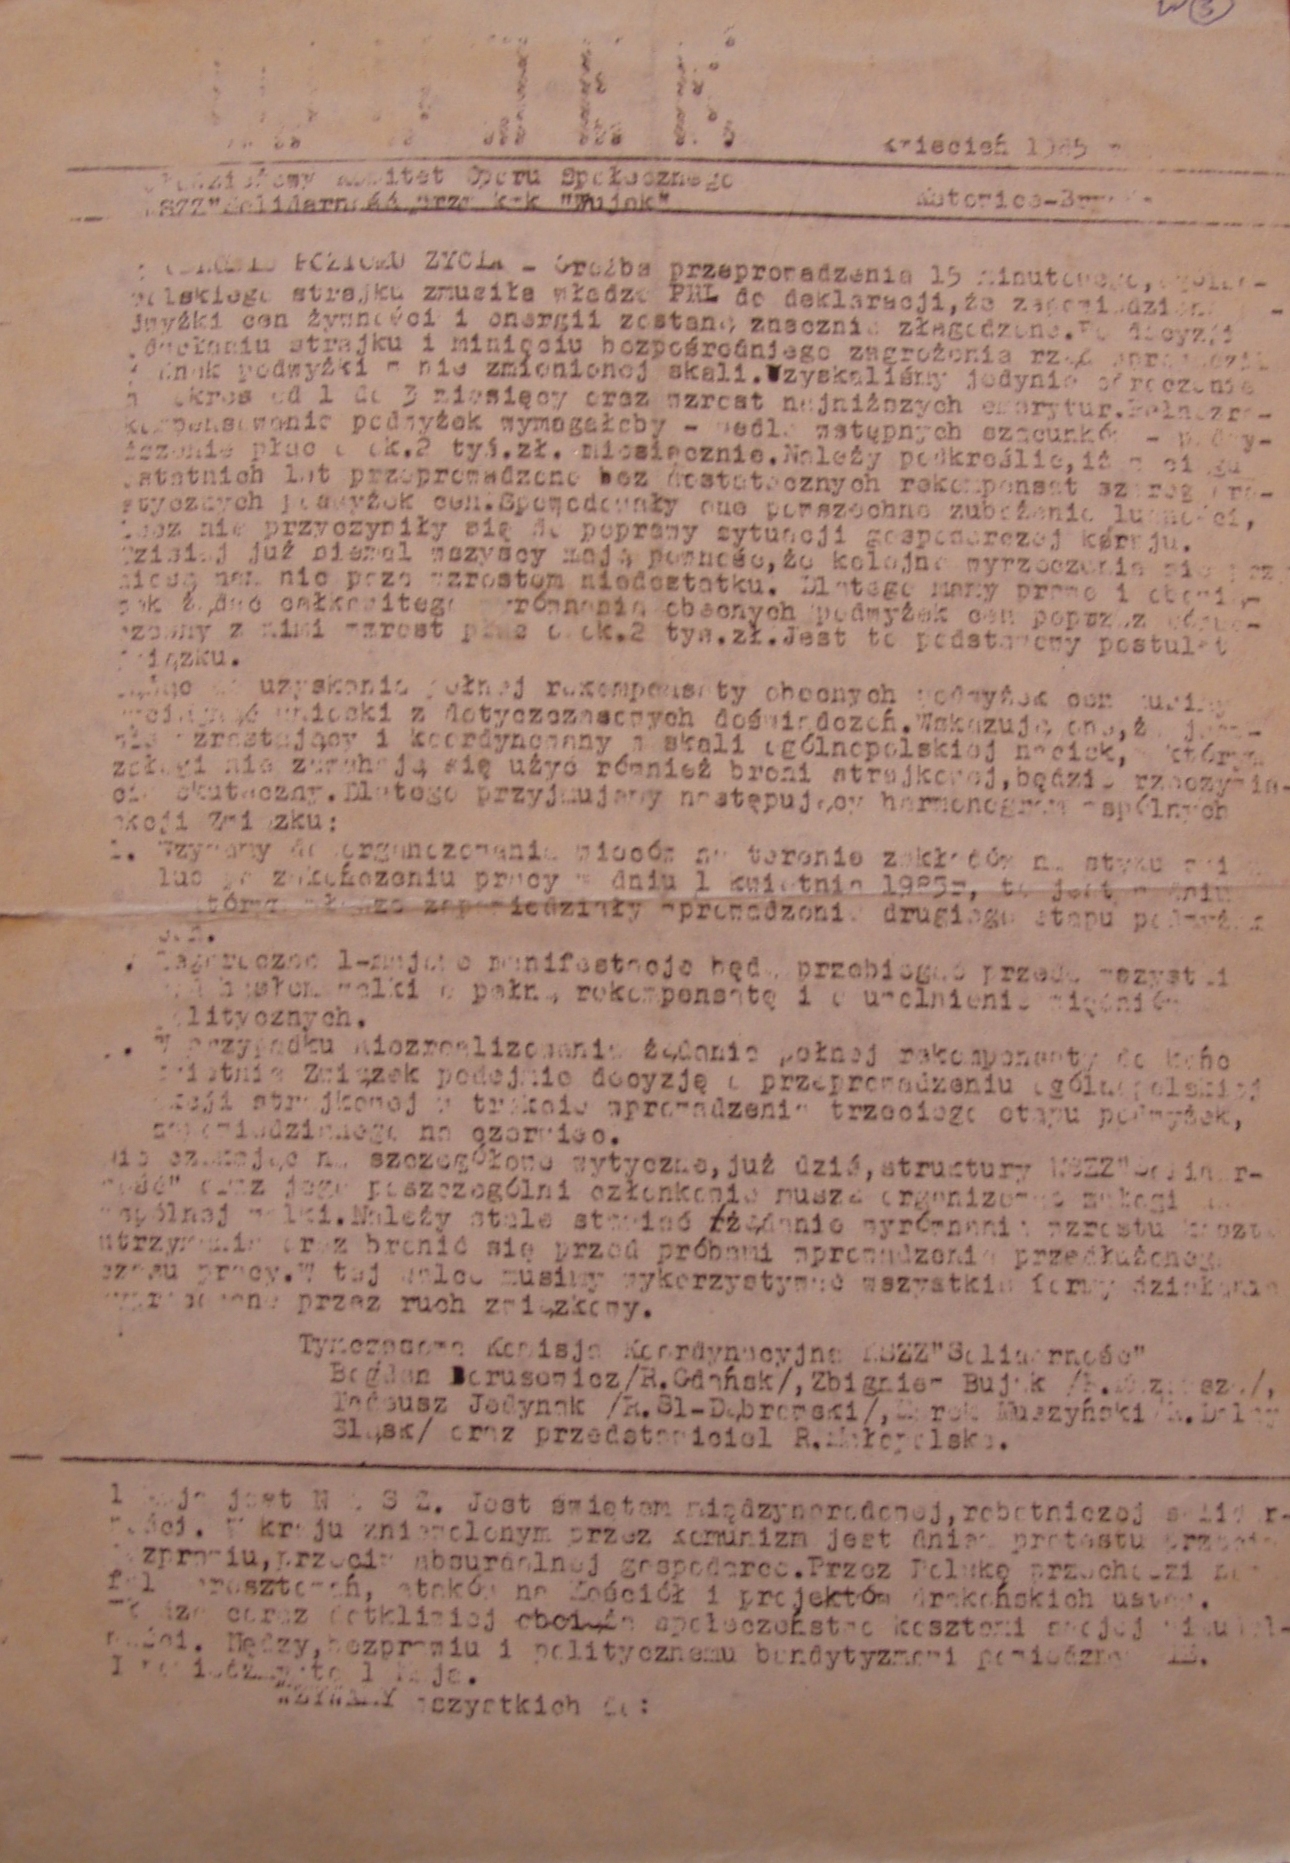 kwiecień 1985 r
Komitet Oporu Społecznego
NSZZ"Solidarność przy kwk "Wujek" Katowice-Brynów
POZIOMU ŻYCIA - Groźba przeprowadzenia 15 minutowego,
polskiego strajku zmusiła władze PRL do deklaracji,że zapowiedziane -
podwyżki cen żywności i energii zostaną znacznie złagodzone.Po decyzji
odwołaniu strajku i minięciu bezpośredniego zagrożenia rząd wprowadził
jednak podwyżki w nie zmienionej skali.Uzyskaliśmy jedynie odroczenie
okres od 1 do 3 miesięcy oraz wzrost najniższych emerytur.
kompensowanie podwyżek wymagałoby - wedle wstępnych szacunków -
płac o ok.2 tyś.zł. miesięcznie.Należy podkreślić,iż w ciągu
ostatnich lat przeprowadzono bez dostatecznych rekompensat szereg
podwyżek cen.Spowodowały one powszechne zubożenie ludności,
lecz nie przyczyniły się do poprawy sytuacji gospodarczej karaju.
Dzisiaj już niemal wszyscy mają pewność,że kolejne wyrzeczenia nie
niosą nam nic poza wzrostem niedostatku. Dlatego mamy prawo i
żądać całkowitego wyrównania obecnych podwyżek cen poprzez
z nimi wzrost płac o ok.2 tyś.zł.Jest to podstawowy postulat
związku.
uzyskania pełnej rekompensaty obecnych podwyżek cen musimy
wnioski z dotyczczasowych doświadczeń.Wskazują one,że
wzrastający i koordynowany w skali ogólnopolskiej nacisk, w którym
załogi nie zawahają się użyć również broni strajkowej,będzie
skuteczny.Dlatego przyjmujemy następujący harmonogram wspólnych
akcji Związku:
1. Wzywamy do organozowania wieców na terenie zakładów na styku
lub po zakończeniu pracy w dniu 1 kwietnia 1985r, to jest w dniu
którym władze zapowiedziały wprowadzenie drugiego etapu podwyżek
cen.
. Tegoroczne 1-majowe manifestacje będą przebiegać przede wszystki
hasłem walki o pełną rekompensatę i o uwolnienie więźniów
politycznych.
. W przypadku niezrealizowania żądania pełnej rekompensaty do końc
kwietnia Związek podejmie decyzję o przeprowadzeniu ogólnopolskiej
akcji strajkowej w trakcie wprowadzenia trzeciego etapu podwyżek,
zapowiedzianego na czerwiec.
Nie czekając na szczegółowe wytyczne,już dziś,struktury NSZZ"Solidar-
ność" oraz jego poszczególni członkowie muszą organizować załogi
wspólnej walki.Należy stale stawiać żądanie wyrównania wzrostu
utrzymania oraz bronić się przed próbami wprowadzenia przedłużonego
czasu pracy.W tej walce musimy wykorzystywać wszystkie formy działania
przez ruch związkowy.
Tymczasowa Komisja Koordynacyjna NSZZ"Solidarność"
Bogdan Borusewicz/R.Gdańsk/,Zbigniew Bujak /R.Mazowsze/,
Tadeusz Jedynak /R.Sl-Dąbrowski/,Marek Muszyński/R.Dolny
Sląsk/ oraz przedstawiciel R.Małopolska.
1 maja jest N A S Z. Jest świętem międzynarodowej,robotniczej solidar-
ności. W kraju zniewolonym przez komunizm jest dniem protestu przeciw
bezprawiu,przeciw absurdalnej gospodarce.Przez Polskę przechodzi
fala aresztowań, ataków na Kościół i projektów drakońskich ustaw.
Władze coraz dotkliwiej obciąża społeczeństwo kosztami swojej
ności. Nędzy,bezprawiu i politycznemu bandytyzmowi powiedzmy NIE.
I powiedzmy to 1 Maja.
WZYWAMY wszystkich do: